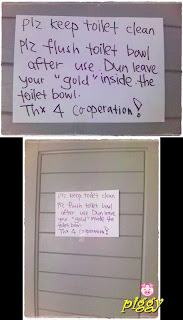 Plz keep toilet clean
Plz flush toilet bowl
after use. Dun leave
your "gold" inside the
toilet bowl.
Thx 4 co-operation!
Plz keep toilet clean
Plz flush toilet bowl
after use. Dun leave
your "gold" inside the
toilet bowl.
Thx 4 co-operation!
piggy